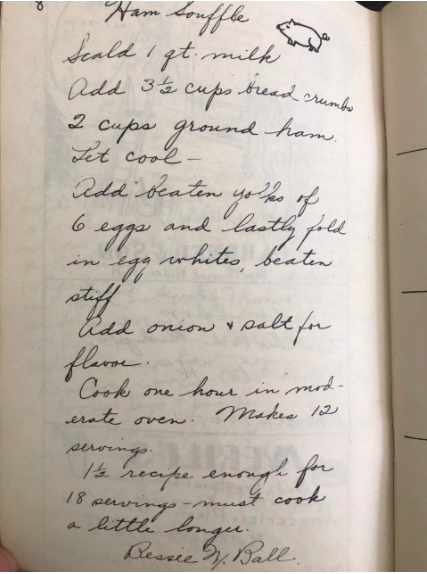 Ham Souffle
Scald 1 qt. milk
Add 3½ cups bread crumbs
2 cups ground ham.
Let cool —
Add beaten yolks of
6 eggs and lastly fold
in egg whites, beaten
stiff
Add onion & salt for
flavor.
Cook one hour in mod-
erate oven. Makes 12
servings.
1½ recipe enough for
18 servings - must cook
a little longer.
Bessie N. Ball